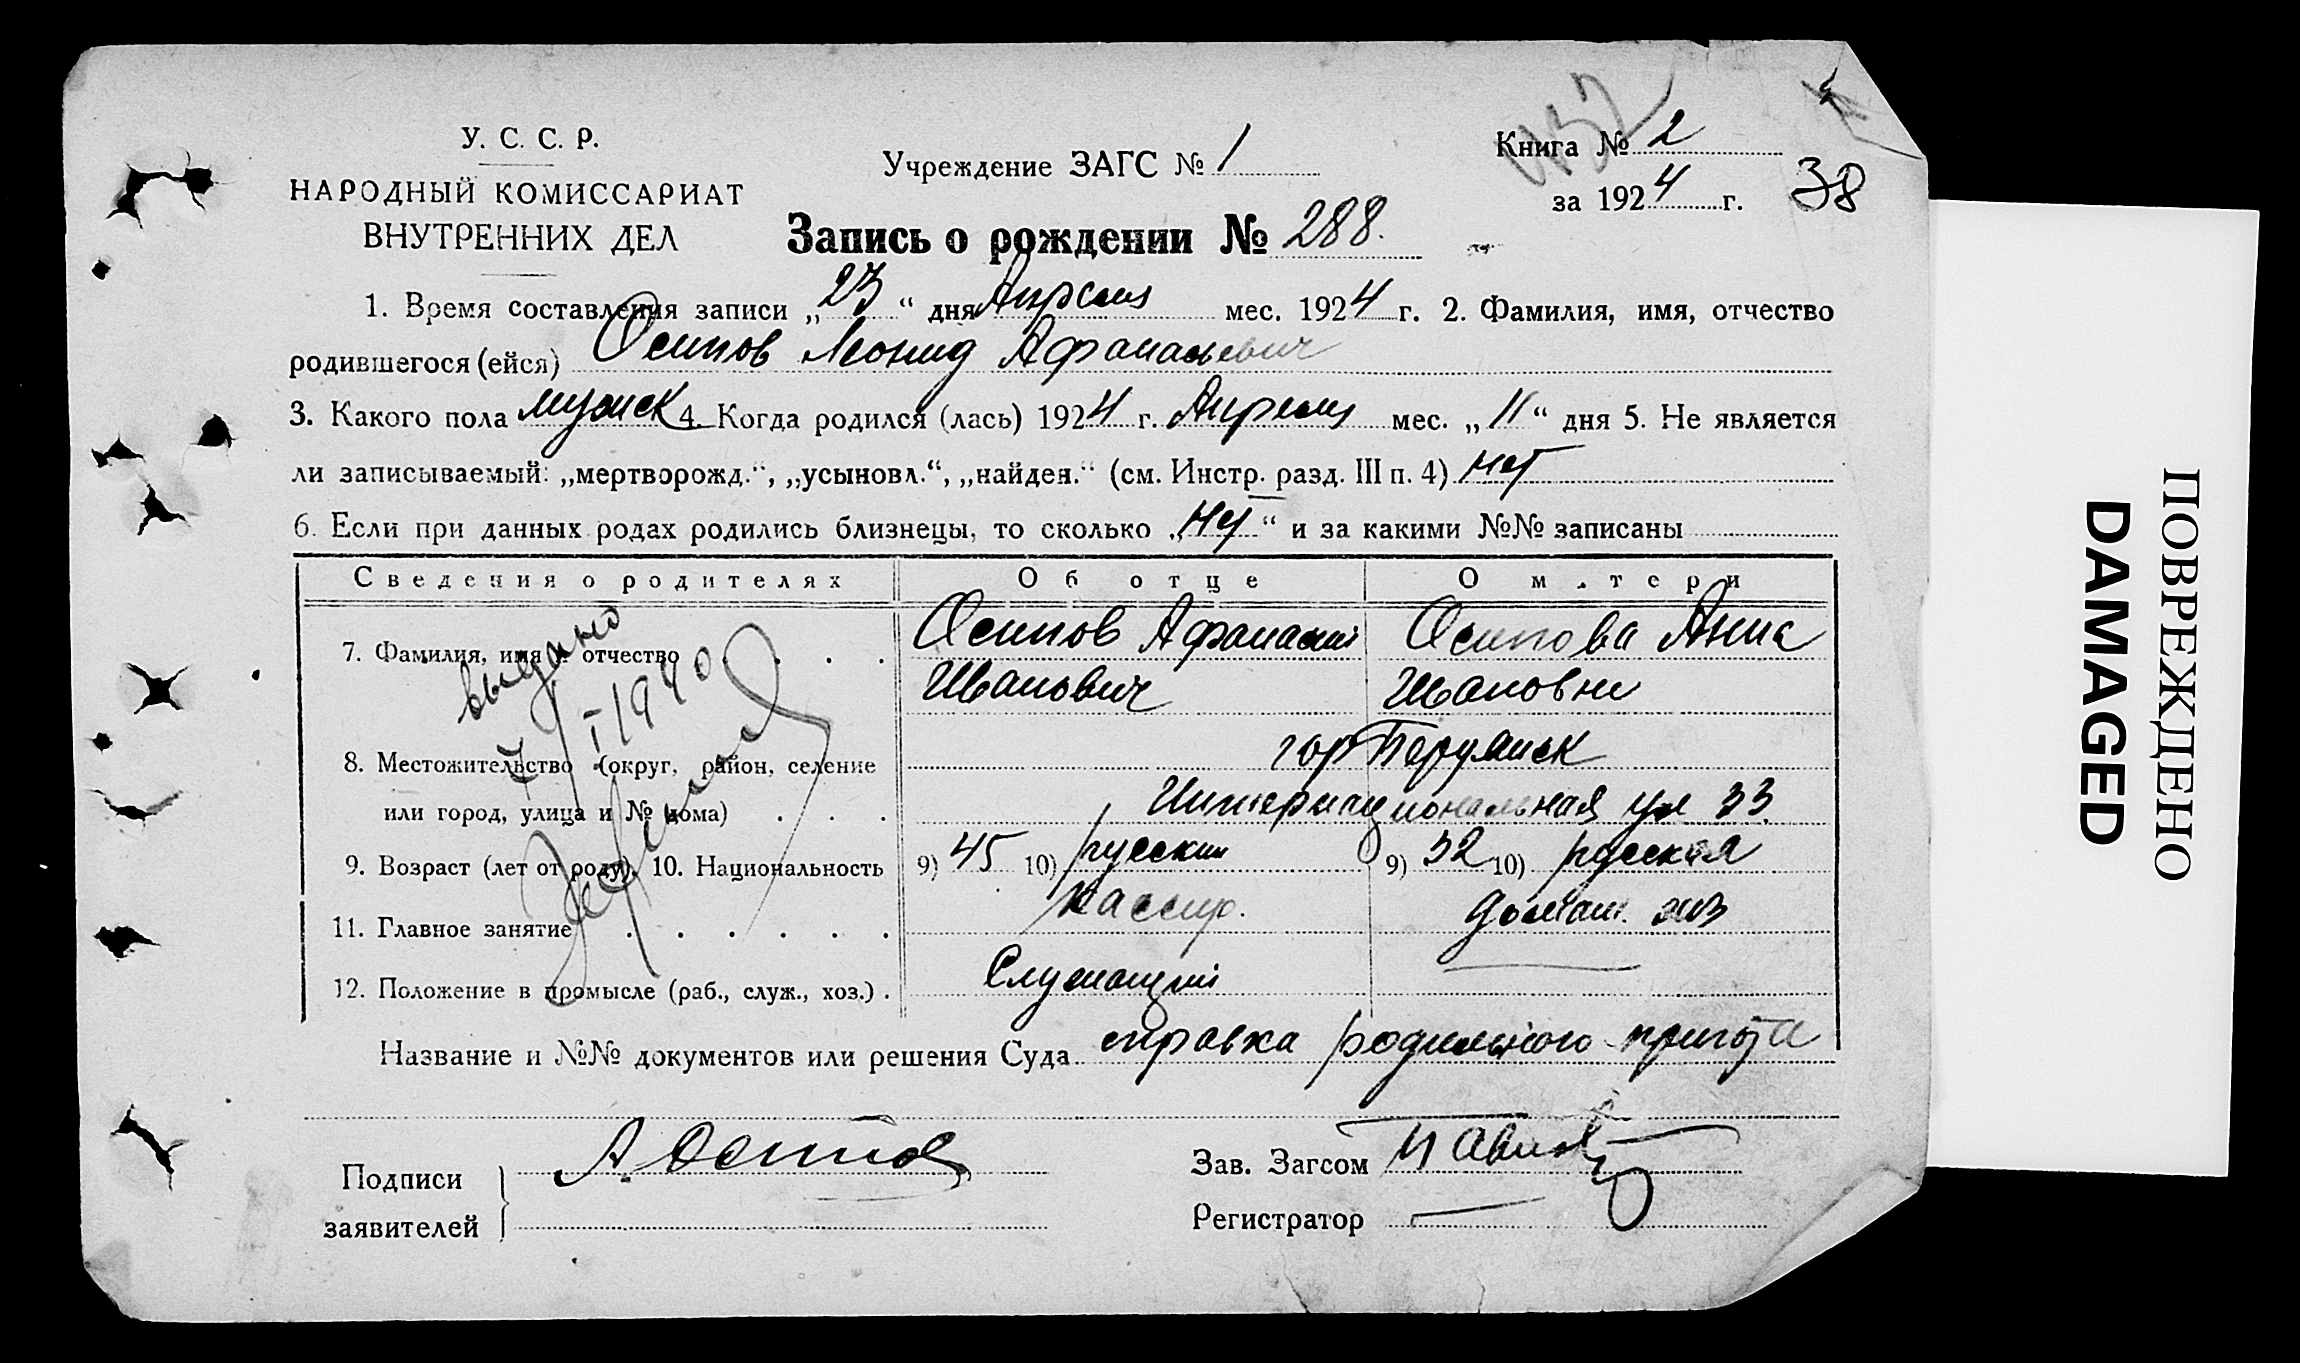 У. С. С. Р.
НАРОДНЫЙ КОМИССАРИАТ
ВНУТРЕННИХ ДЕЛ
Учреждение ЗАГС № 1
Книга № 2
за 1924 г.
38
Запись о рождении № 288.
1. Время составления записи „23“ дня Апреля мес. 1924 г. 2. Фамилия, имя, отчество
родившегося (ейся) Осипов Леонид Афанасьевич
3. Какого пола мужск 4. Когда родился (лась) 1924 г. Апреля мес. „11“ дня 5. Не является
ли записываемый: „мертворожд.“, „усыновл.“, „найден.“ (см. Инстр. разд. III п. 4) нет
6. Если при данных родах родились близнецы, то сколько „нет“ и за какими №№ записаны
Сведения о родителях Об отце О матери
7. Фамилия, имя и отчество . . . Осипов Афанасий Осипова Анна
Иванович Ивановна
выдано
7/I 1940
8. Местожительство (округ, район, селение гор
или город, улица и № дома) . . . Интернациональная ул 33.
9. Возраст (лет от роду). 10. Национальность 9) 45 10) русский 9) 32 10) русская
11. Главное занятие . . . . . . Кассир. домаш. хоз
12. Положение в промысле (раб., служ., хоз.) . Служащий
Название и №№ документов или решения Суда справка родильного приюта
Подписи
заявителей
А. Осипов
Зав. Загсом
Регистратор
ПОВРЕЖДЕНО
DAMAGED